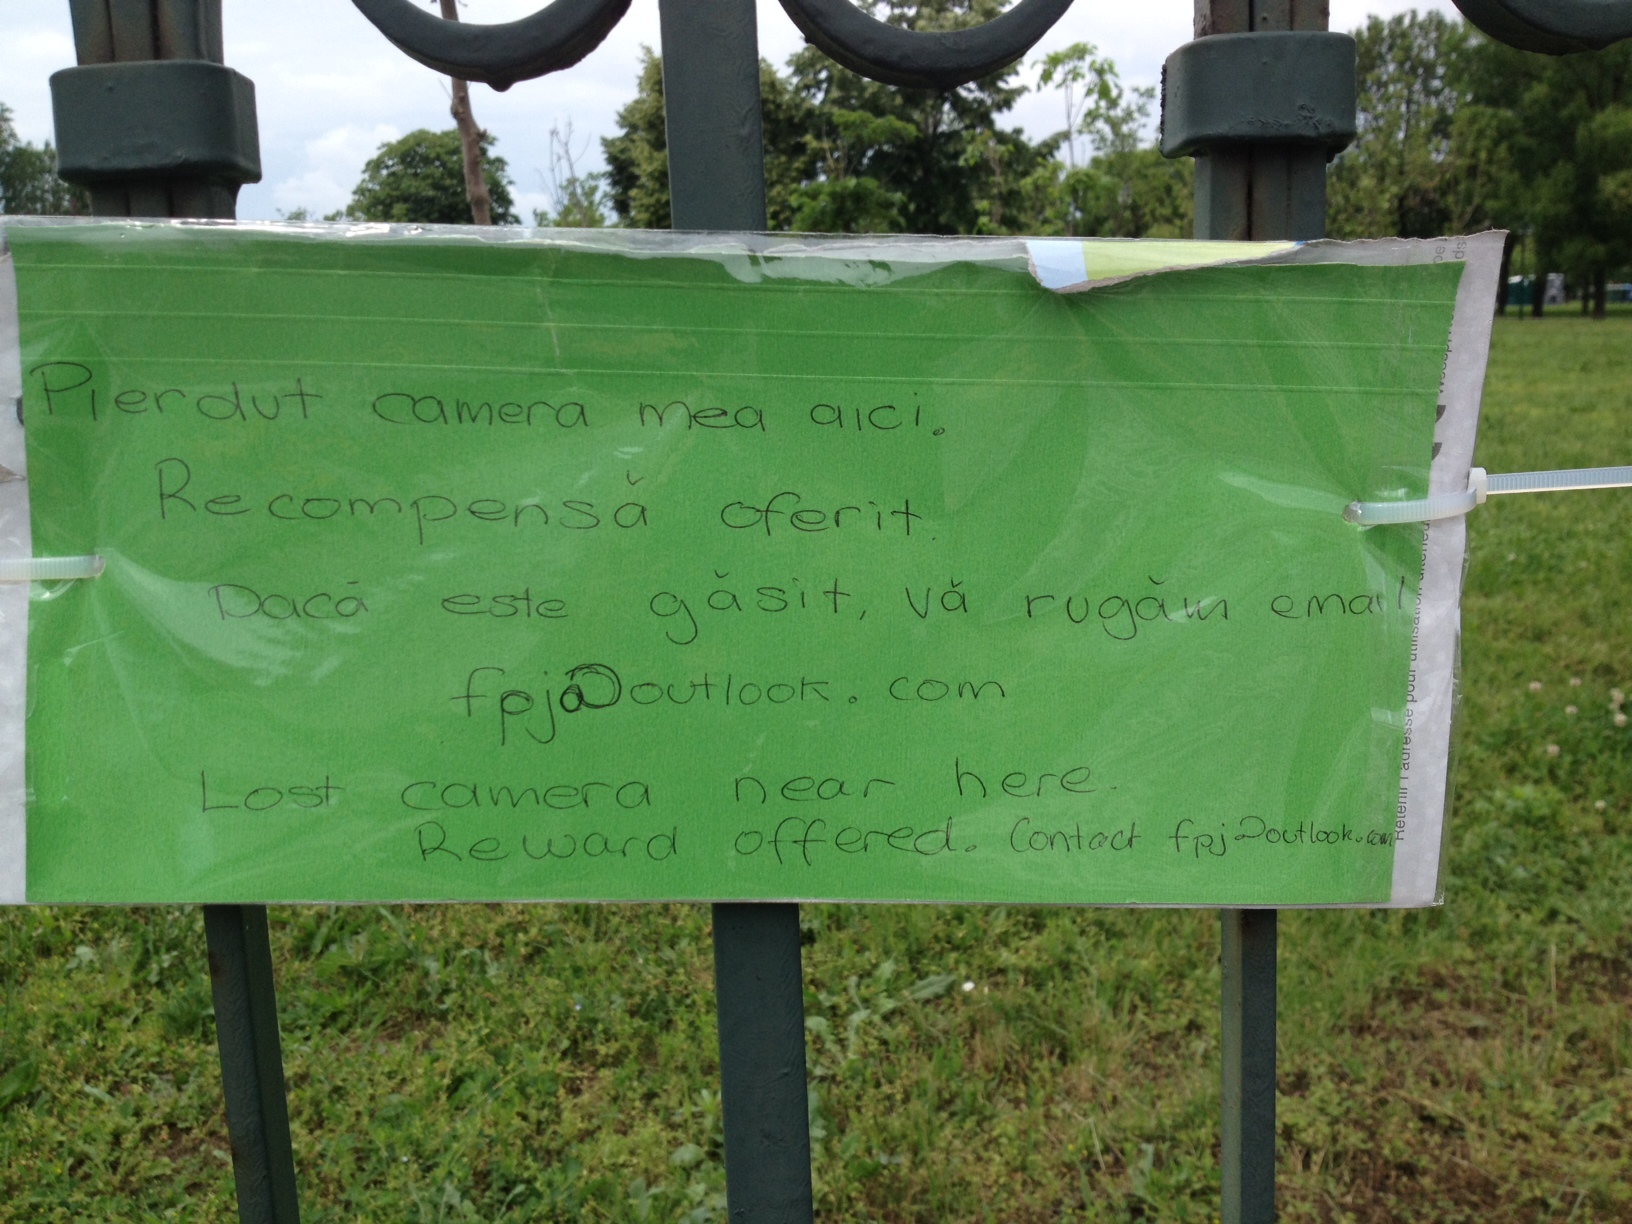 Pierdut camera mea aici.
Recompensă oferit.
Dacă este găsit, vă rugăm email
fpj@outlook.com
Lost camera near here.
Reward offered. Contact fpj@outlook.com
Retenir l'adresse pour utilisation